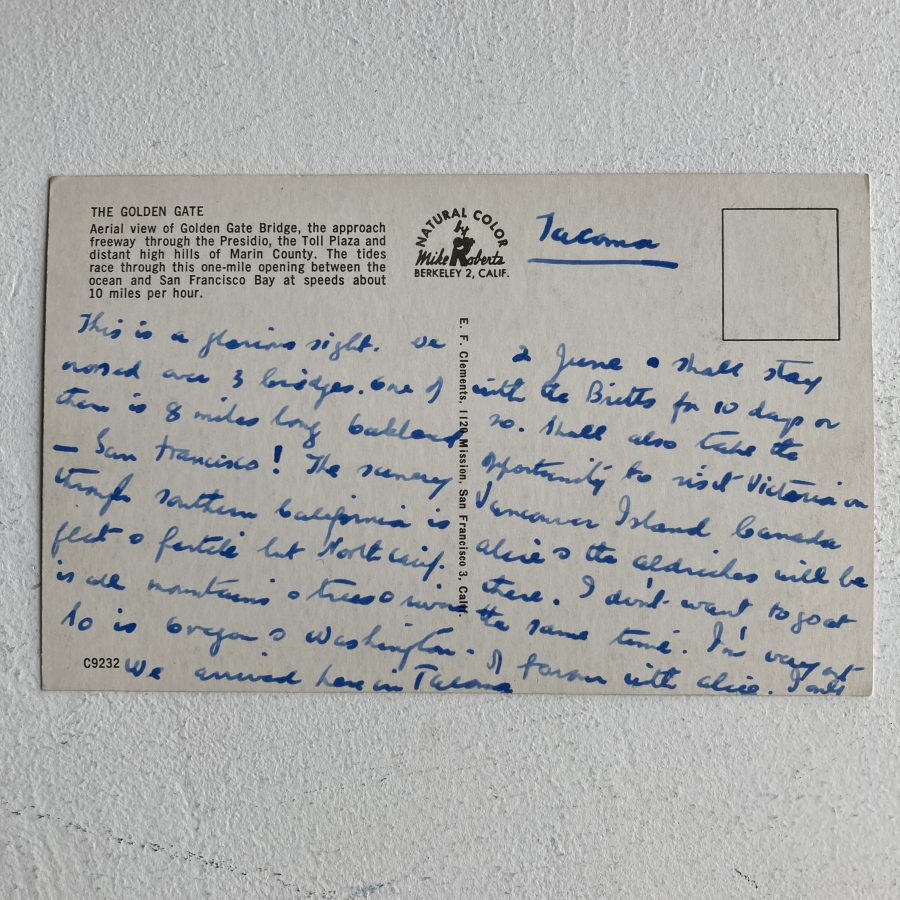 THE GOLDEN GATE
Aerial view of Golden Gate Bridge, the approach
freeway through the Presidio, the Toll Plaza and
distant high hills of Marin County. The tides
race through this one-mile opening between the
ocean and San Francisco Bay at speeds about
10 miles per hour.
NATURAL COLOR
by
Mike Roberts
BERKELEY 2, CALIF.
Tacoma
This is a glorious sight. We
crossed over 3 bridges. One of
them is 8 miles long Oakland
— San Francisco! The scenery
through southern California is
flat & fertile but North Calif.
is all mountains & trees & rivers
So is Oregon & Washington.
We arrived here in Tacoma
C9232
E. F. Clements, 1120 Mission, San Francisco 3, Calif.
2 June & shall stay
with the Britts for 10 days or
so. Shall also take the
opportunity to visit Victoria on
Vancouver Island Canada
Alice & the Aldriches will be
there. I don't want to go at
the same time. I'm very out
of favour with Alice. I only